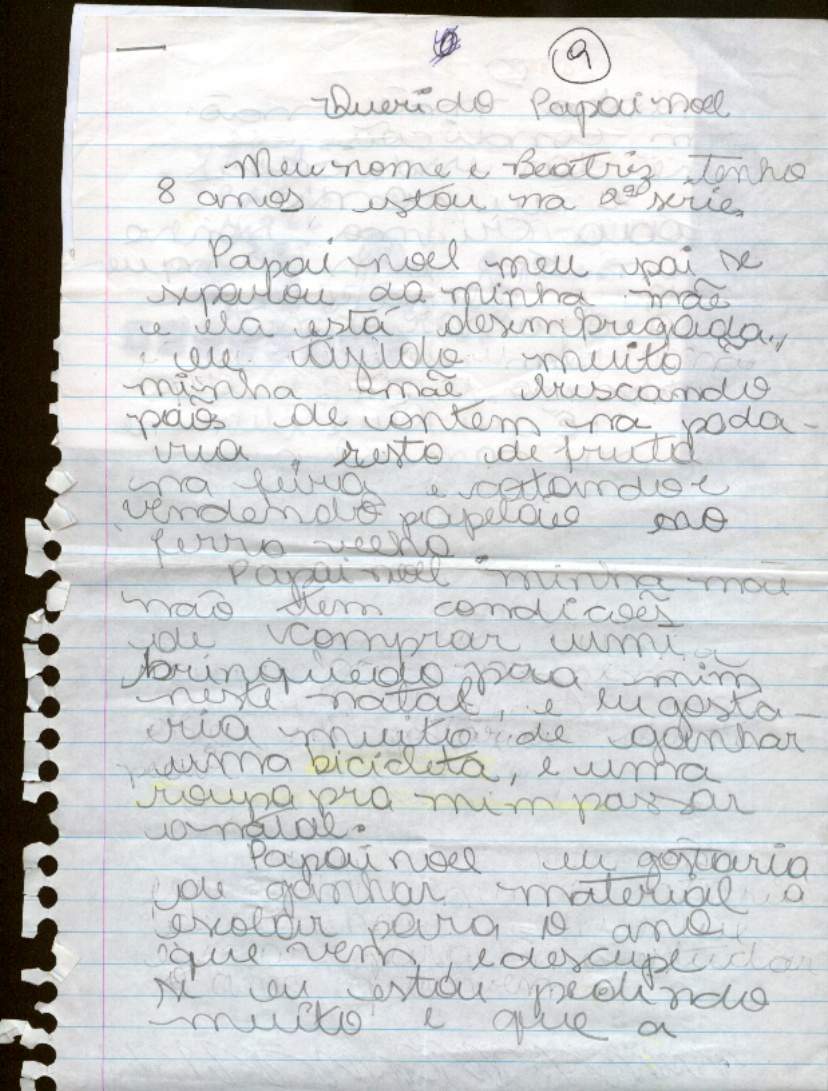 9
Querido Papai noel
Meu nome e Beatriz tenho
8 anos estou na 2ª série.
Papai noel meu pai se
separou da minha mãe
e ela está desempregada,
eu ajudo muito
minha mãe buscando
pãos de ontem na pada-
ria, resto de fruta
na feira e catando e
vendendo papelão no
ferro velho
Papai noel minha mãe
não tem condicões
de comprar um
brinquedo pra mim
neste natal, e eu gosta-
ria muito de ganhar
uma bicicleta, e uma
roupa pra mim passar
o natal.
Papai noel eu gostaria
de ganhar material
escolar para o ano
que vem, e descupe
se eu estou pedindo
muito e que a